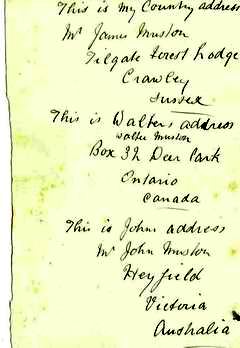 This is my Country address
Mr James Muston
Tilgate Forest Lodge
Crawley
Sussex
This is Walters address
Walter Muston
Box 32 Deer Park
Ontario
Canada
This is John address
Mr John Muston
Heyfield
Victoria
Australia